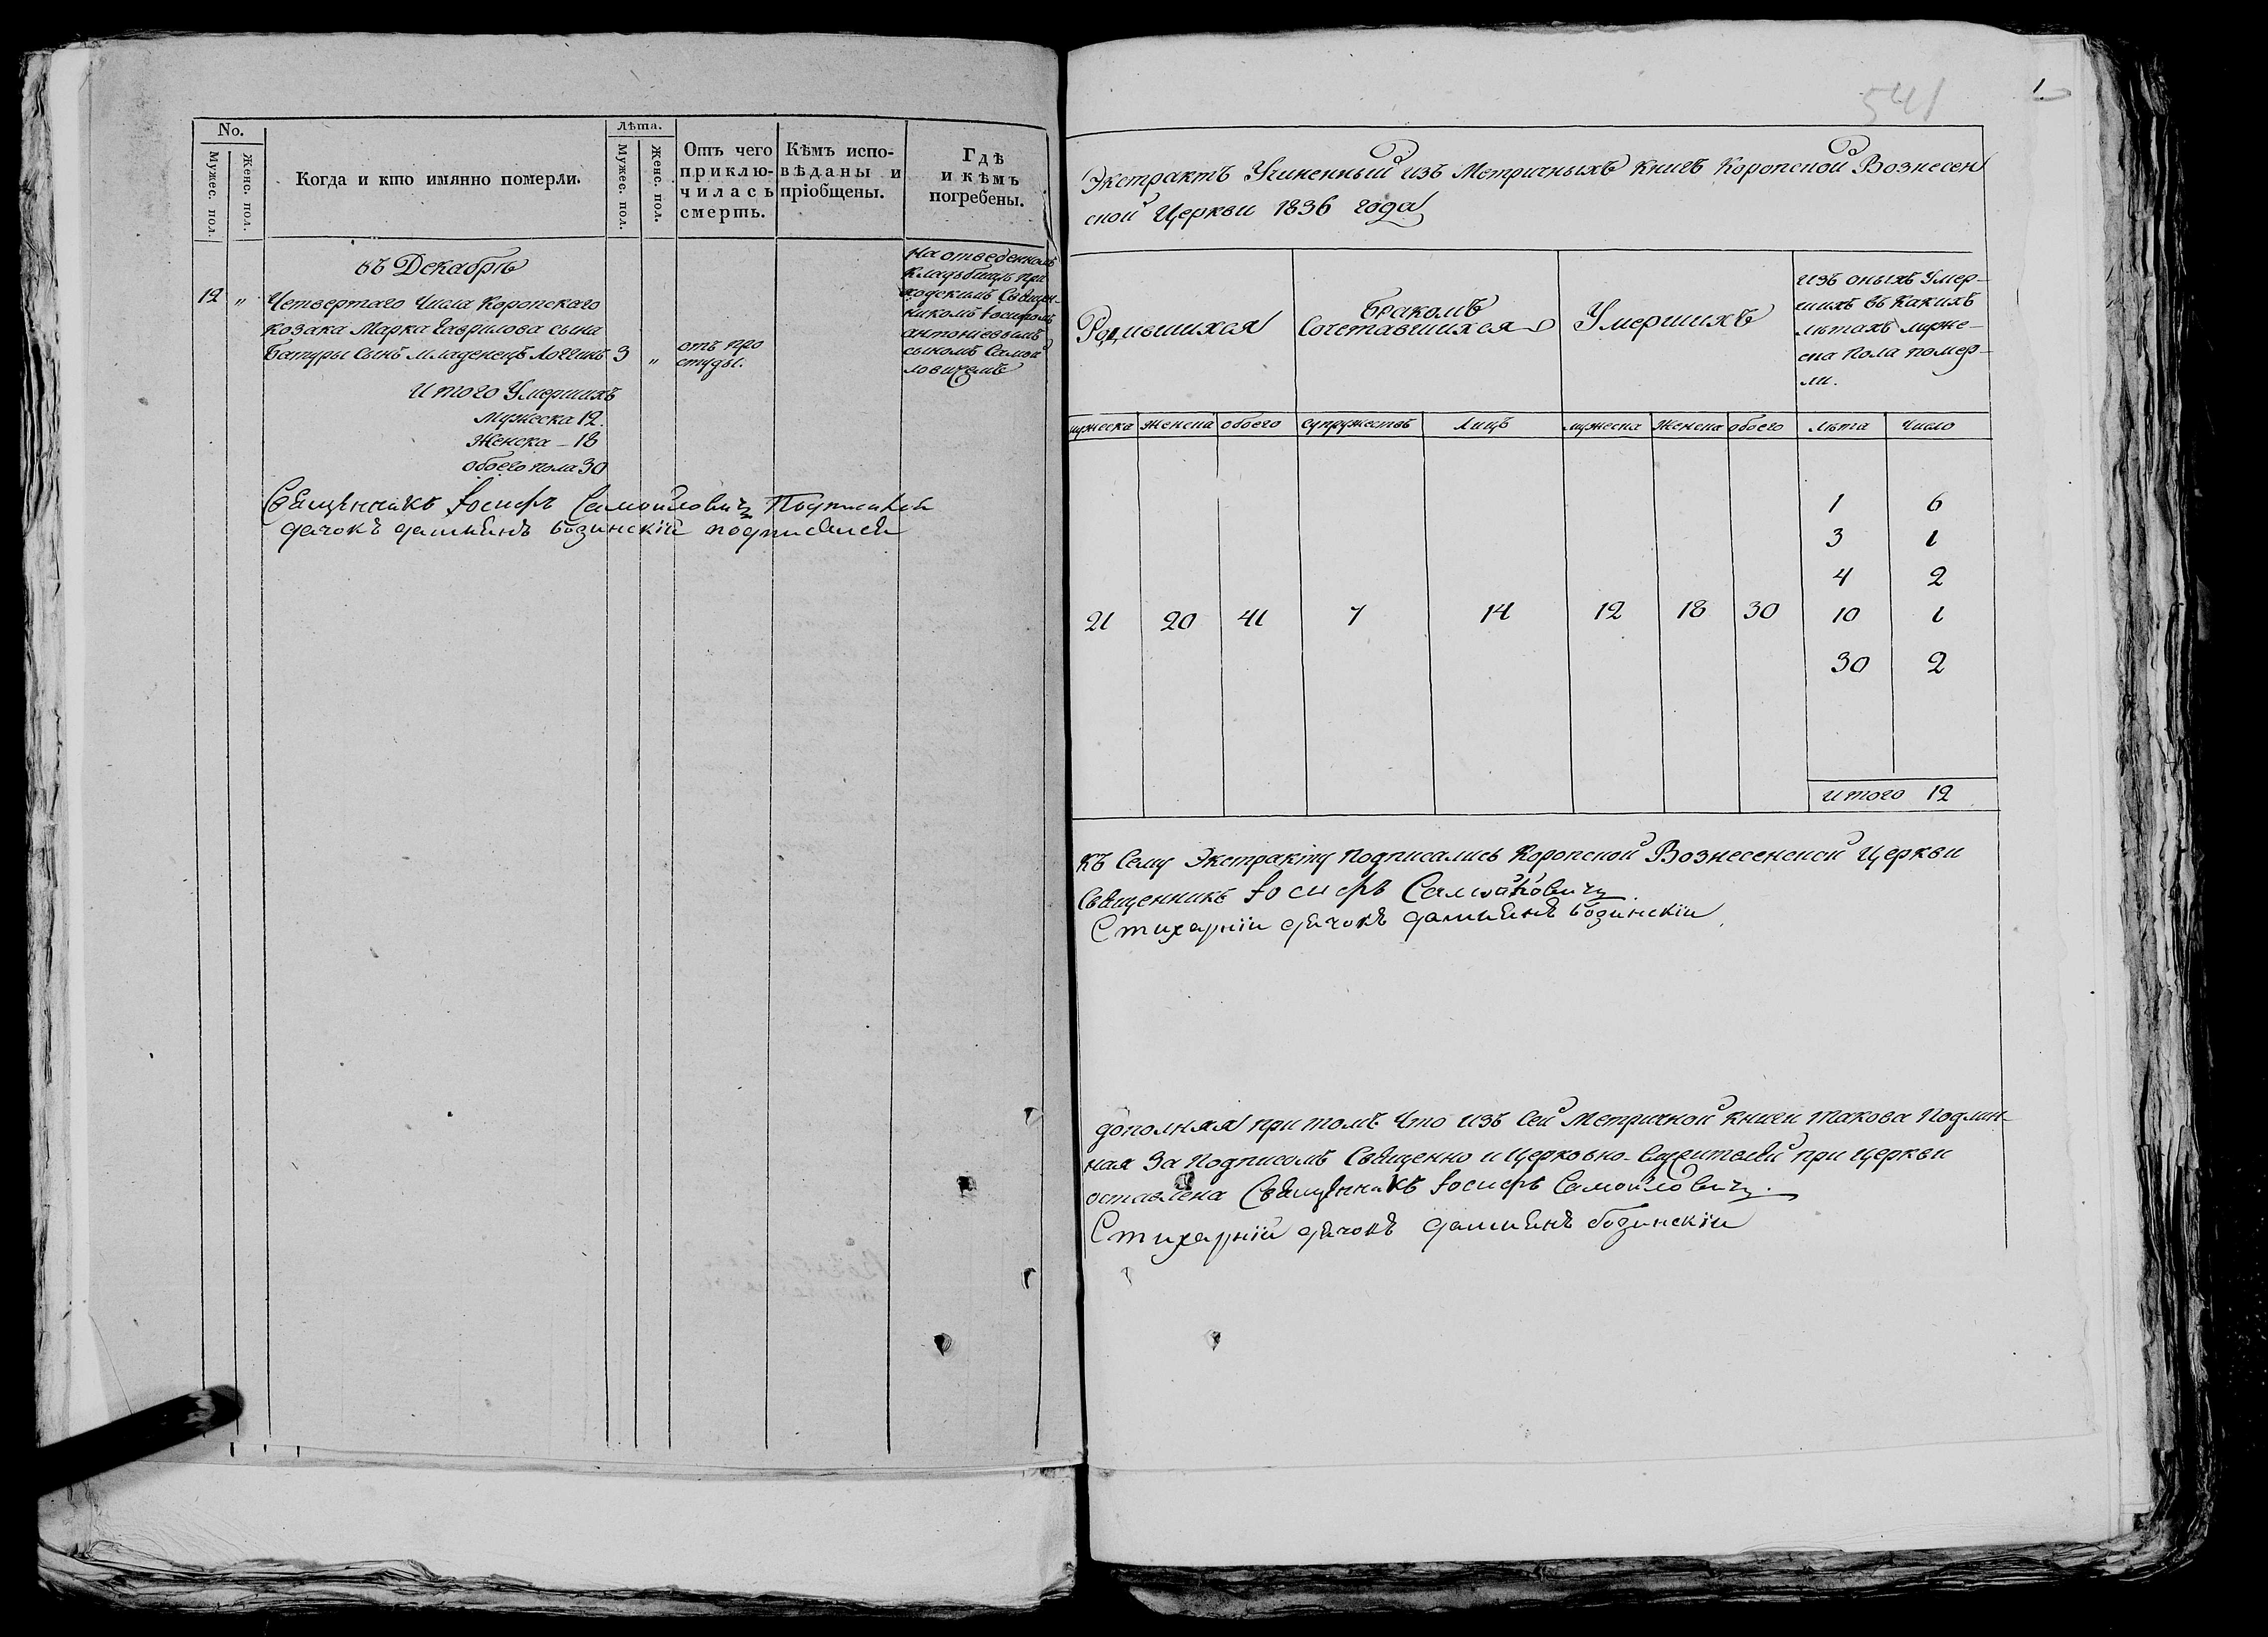 No.
Мужес. пол.
Женс. пол.
Когда и кто имянно померли.
Лѣта.
Мужес. пол.
Женс. пол.
Отъ чего
приклю-
чилась
смерть.
Кѣмъ испо-
вѣданы и
пріобщены.
Гдѣ
и кѣмъ
погребены.
въ Декабрѣ
12 „ Четвертаго Числа Коропского
козака Марка Гаврилова сына
Батуры Сынъ младенецъ Логгинъ 3 „
отъ про
студы.
На отведенномъ
кладьбищѣ при
ходскимъ Священ-
никомъ Іосифомъ
антоніевымъ
сыномъ Самой
ловичемъ
Итого Умершихъ
мужеска 12.
Женска - 18
обоего пола 30
Священникъ Іосифъ Самойловичъ Подписался
дячокъ даміянъ бозинскій подписался
541
1
Экстрактъ Учиненный изъ Метричныхъ книгъ Коропской Вознесен
ской Церкви 1836 года
Родившихся
Бракомъ
Сочетавшихся
Умершихъ
Изъ оныхъ Умер-
шихъ въ какихъ
лѣтахъ муже-
ска пола помер-
ли.
мужеска женска обоего супружествъ Лицъ мужеска Женска обоего Лѣта Число
1 6
3 1
4 2
21 20 41 7 14 12 18 30 10 1
30 2
Итого 12
Къ Сему Экстракту подписались Коропской Вознесенской Церкви
Священникъ Іосифъ Самойловичъ
Стихарній дячокъ даміянъ бозинскій
дополняя при томъ Что изъ Сей Метричной книги такова Подлин-
ная За Подписомъ Священно и церковно-Служителей при церкви
оставлена Священникъ Іосифъ Самойловичъ.
Стихарній дячокъ даміянъ бозинскій